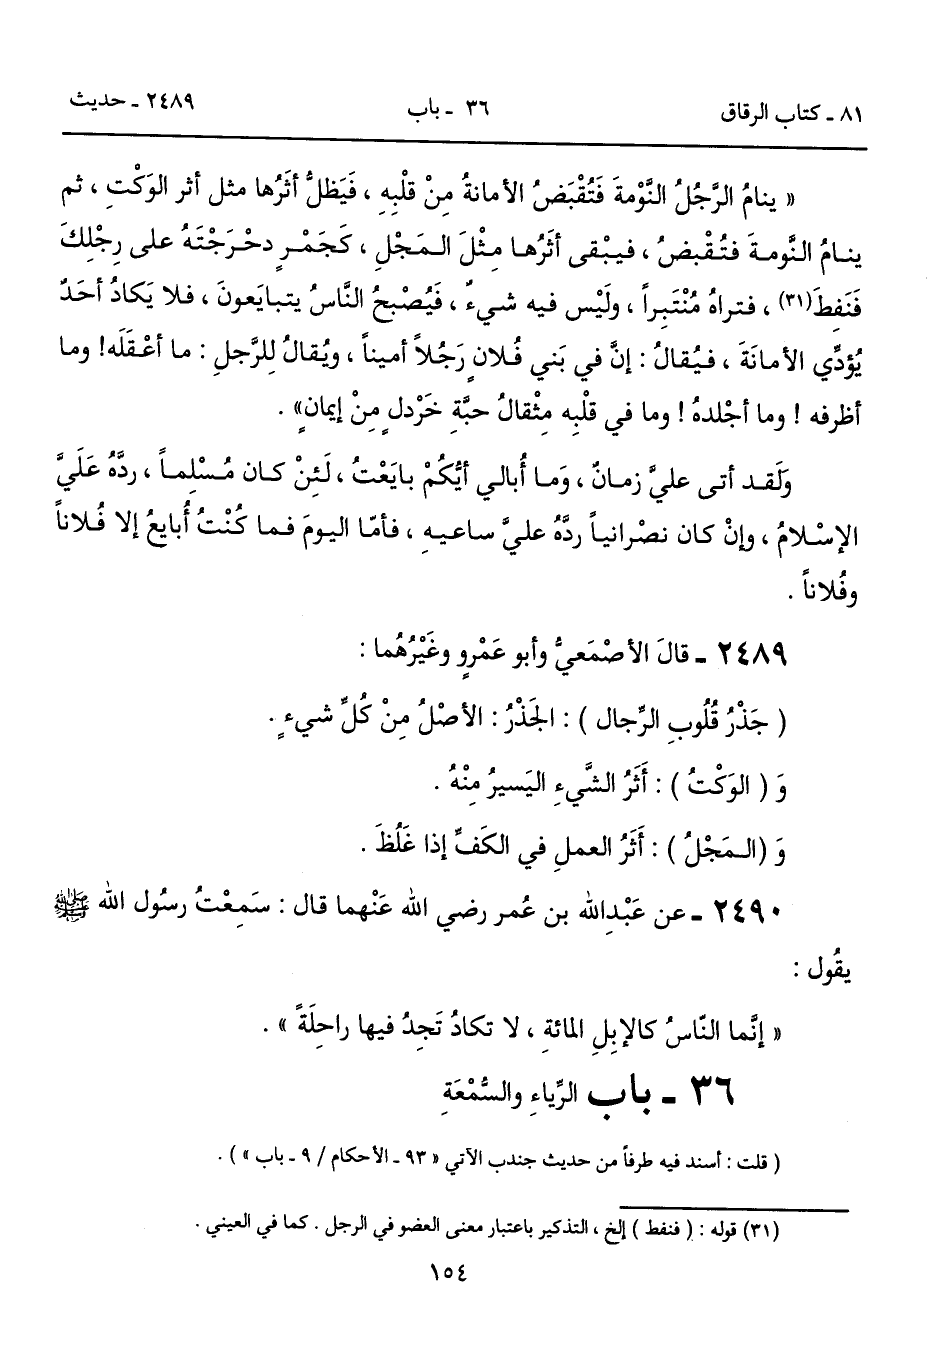 ٨١ ـ كتاب الرقاق ٣٦ ـ باب ٢٤٨٩ ـ حديث
« ينامُ الرَّجُلُ النَّوْمةَ فَتُقْبَضُ الأمانةُ مِنْ قلْبِهِ ، فَيَظلُّ أثَرُها مثل أثر الوَكْتِ ، ثم
ينامُ النَّومةَ فتُقْبضُ ، فيبْقى أثَرُها مِثْلَ المَجْلِ ، كَجَمْرٍ دحْرَجْتَهُ على رِجْلِكَ
فَنَفِطَ(٣١) ، فتراهُ مُنْتَبِراً ، ولَيْس فيه شيءٌ ، فَيُصْبحُ النَّاسُ يتبايَعونَ ، فلا يَكادُ أحَدٌ
يُؤدِّي الأمانَةَ ، فيُقالُ : إنَّ في بَني فُلانٍ رَجُلاً أميناً ، ويُقالُ للرَّجلِ : ما أعْقَلَه! وما
أظرفه ! وما أجْلدهُ ! وما في قلْبِه مِثْقالُ حبَّةِ خَرْدلٍ مِنْ إيمانٍ» .
وَلَقد أتى عليَّ زمانٌ ، وَما أُبالي أيُّكُمْ بايَعْتُ ، لَئِنْ كان مُسْلِماً ، ردَّهُ عَلَيَّ
الإسْلامُ ، وإنْ كان نصْرانياً ردَّهُ عليَّ ساعيهِ ، فأمّا اليومَ فما كُنْتُ أُبايعُ إلا فُلاناً
وفُلاناً .
٢٤٨٩ ـ قالَ الأصْمَعيُّ وأبو عَمْرٍو وغَيْرُهُما :
( جَذْرُ قُلُوبِ الرِّجال ) : الجَذْرُ : الأصْلُ مِنْ كُلِّ شيءٍ .
وَ ( الوَكْتُ ) : أَثَرُ الشَّيءِ اليَسيرُ مِنْهُ .
وَ (المَجْلُ ) : أَثَرُ العملِ في الكَفِّ إذا غَلُظَ .
٢٤٩٠ ـ عن عَبْدِالله بن عُمر رضي الله عَنْهما قال : سَمِعْتُ رسُول الله ﷺ
يقُول :
« إنَّما النّاسُ كالإبِلِ المائةِ ، لا تكادُ تَجِدُ فيها راحِلَةً » .
٣٦ ـ باب الرِّياءِ والسُّمْعَةِ
( قلت : أسند فيه طرفاً من حديث جندب الآتي « ٩٣ ـ الأحكام / ٩ ـ باب » ) .
(٣١) قوله : ( فنفط ) إلخ ، التذكير باعتبار معنى العضو في الرجل . كما في العيني .
١٥٤